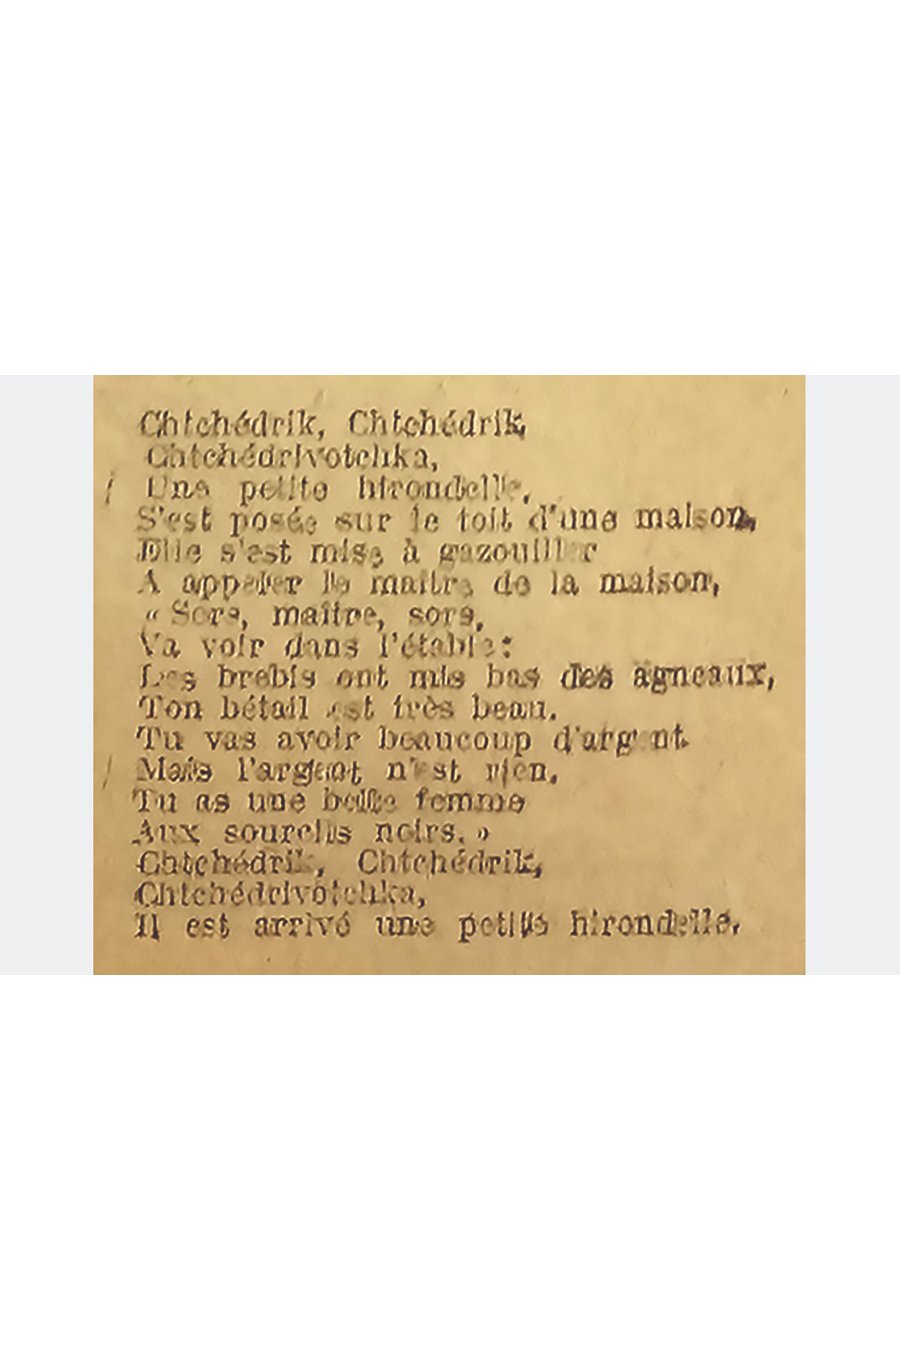 Chtchédrik, Chtchédrik,
Chtchédrivotchka,
Une petite hirondelle,
S'est posée sur le toit d'une maison,
Elle s'est mise à gazouiller
A appeler le maître de la maison,
« Sors, maître, sors,
Va voir dans l'étable:
Les brebis ont mis bas des agneaux,
Ton bétail est très beau.
Tu vas avoir beaucoup d'argent
Mais l'argent n'est rien,
Tu as une belle femme
Aux sourcils noirs. »
Chtchédrik, Chtchédrik,
Chtchédrivotchka,
Il est arrivé une petite hirondelle.